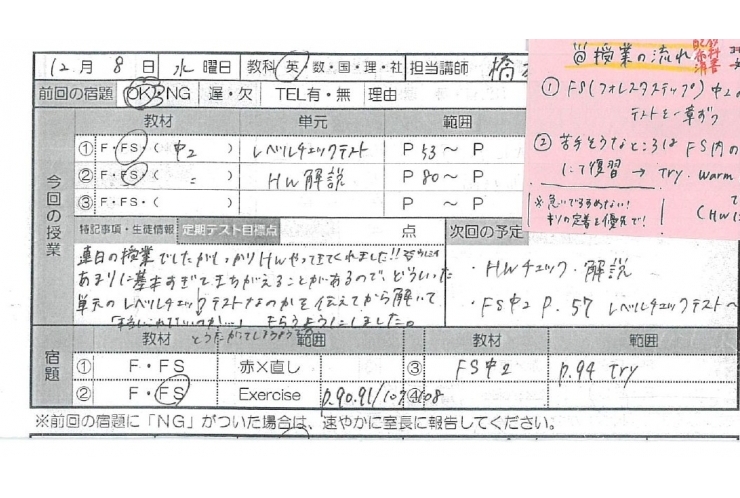 12月 8日 水曜日 教科 英・数・国・理・社 担当講師 橋
前回の宿題 OK・NG 遅・欠 TEL有・無 理由
今回の授業
教材 単元 範囲
① F・FS・( 中2 ) レベルチェックテスト P 53 ~ P
② F・FS・( 〃 ) HW 解説 P 80 ~ P
③ F・FS・( ) P ~ P
特記事項・生徒情報 定期テスト目標点 点 次回の予定
連日の授業でしたがしっかりHWやってきてくれました!!
あまりに基本すぎてまちがえることがあるので、どういった
単元のレベルチェックテストなのかを伝えてから解いて
もらうようにしました。
・HWチェック・解説
・FS中2 P.57 レベルチェックテスト~
宿題
教材 範囲 教材 範囲
① F・FS 赤×直し ③ FS中2 p.94 Try
② F・FS Exercise p.90.91/107.108 ④
※前回の宿題に「NG」がついた場合は、速やかに室長に報告してください。
授業の流れ
① FS(フォレスタステップ)中2の
テストを一章ずつ
② 苦手そうなところは FS内の
にて復習 → Try. Warm
※急いですすめない!
まりの定着を優先で!
(HWに